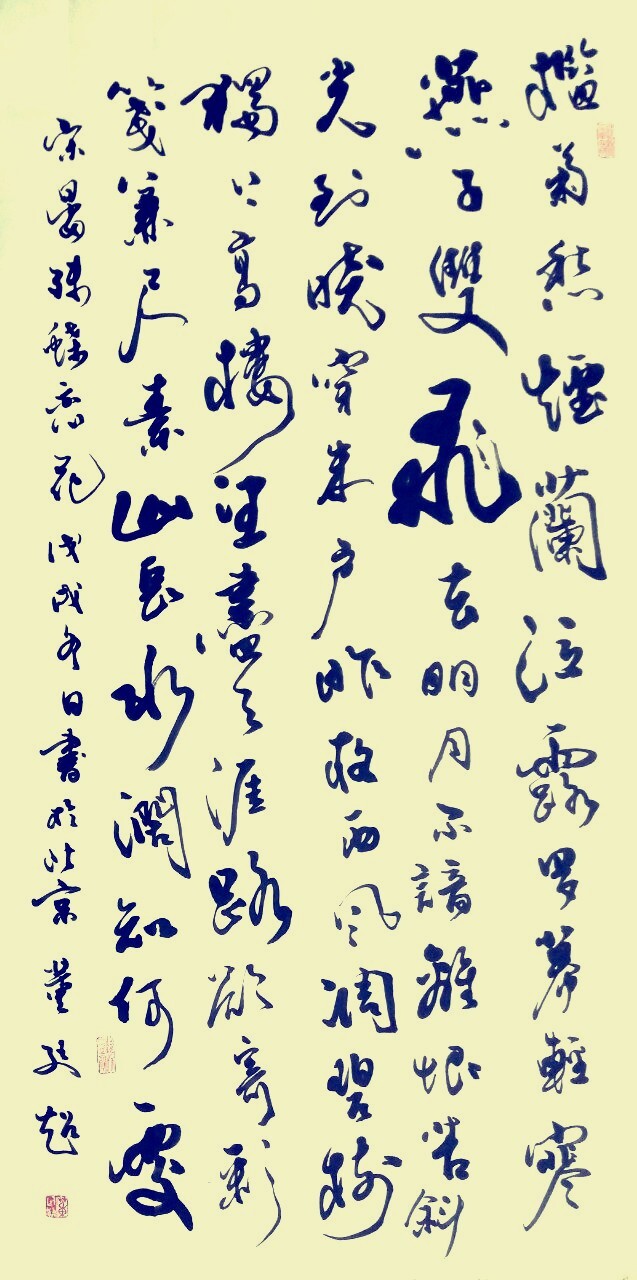 檻菊愁煙蘭泣露羅幕輕寒
燕子雙飛去明月不諳離恨苦斜
光到曉穿朱戶昨夜西風凋碧樹
獨上高樓望盡天涯路欲寄彩
箋兼尺素山長水闊知何處
宋晏殊蝶戀花戊戌冬日書於北京董